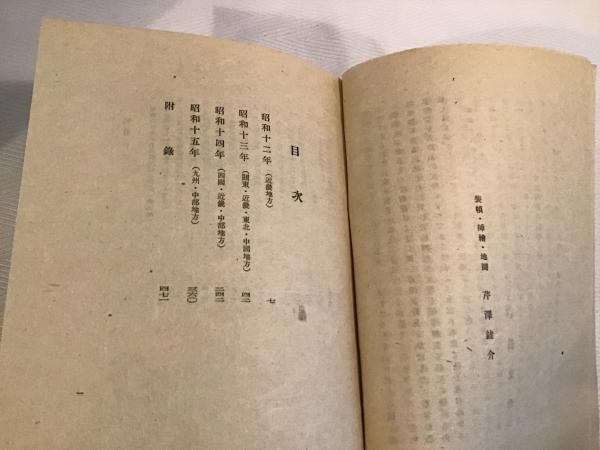 装幀・挿繪・地圖　芹澤銈介
目次
昭和十二年（近畿地方）　七
昭和十三年（關東・近畿・東北・中國地方）　四二
昭和十四年（四國・近畿・中部地方）　二四二
昭和十五年（九州・中部地方）　三六〇
附錄　四七一